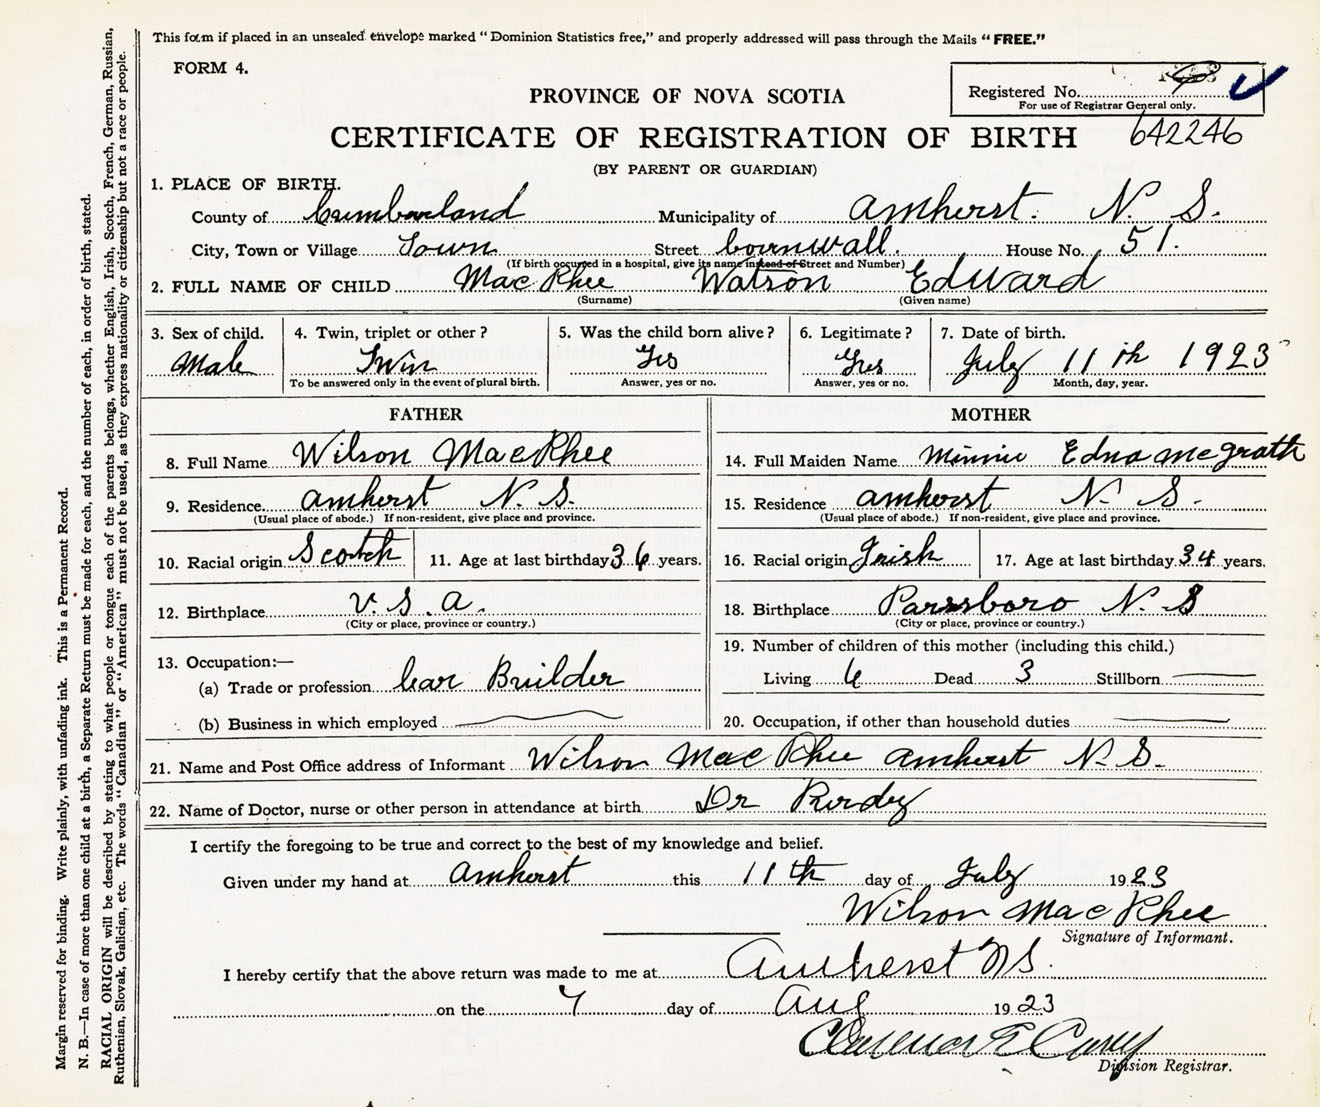 This form if placed in an unsealed envelope marked "Dominion Statistics free," and properly addressed will pass through the Mails "FREE."
FORM 4.
Registered No.
For use of Registrar General only.
PROVINCE OF NOVA SCOTIA
CERTIFICATE OF REGISTRATION OF BIRTH 642246
(BY PARENT OR GUARDIAN)
1. PLACE OF BIRTH.
County of Cumberland Municipality of Amherst. N. S.
City, Town or Village Town Street Cornwall. House No. 51.
(If birth occurred in a hospital, give its name instead of Street and Number)
2. FULL NAME OF CHILD MacRhee Watson Edward
(Surname) (Given name)
3. Sex of child. 4. Twin, triplet or other? 5. Was the child born alive? 6. Legitimate? 7. Date of birth.
Male Twin Yes Yes July 11th 1923
To be answered only in the event of plural birth. Answer, yes or no. Answer, yes or no. Month, day, year.
FATHER MOTHER
8. Full Name Wilson MacRhee 14. Full Maiden Name Minnie Edna McGrath
9. Residence Amherst N. S. 15. Residence Amherst N. S.
(Usual place of abode.) If non-resident, give place and province. (Usual place of abode.) If non-resident, give place and province.
10. Racial origin Scotch 11. Age at last birthday 36 years. 16. Racial origin Irish 17. Age at last birthday 34 years.
12. Birthplace U. S. A. 18. Birthplace Parrsboro N. S
(City or place, province or country.) (City or place, province or country.)
13. Occupation:— 19. Number of children of this mother (including this child.)
(a) Trade or profession Car Builder Living 6 Dead 3 Stillborn
(b) Business in which employed 20. Occupation, if other than household duties
21. Name and Post Office address of Informant Wilson MacRhee Amherst N. S.
22. Name of Doctor, nurse or other person in attendance at birth Dr
I certify the foregoing to be true and correct to the best of my knowledge and belief.
Given under my hand at Amherst this 11th day of July 1923
Wilson MacRhee
Signature of Informant.
I hereby certify that the above return was made to me at Amherst NS.
on the 7 day of Aug 1923
Division Registrar.
Margin reserved for binding. Write plainly, with unfading ink. This is a Permanent Record.
N. B.—In case of more than one child at a birth, a Separate Return must be made for each, and the number of each, in order of birth, stated.
RACIAL ORIGIN will be described by stating to what people or tongue each of the parents belongs, whether English, Irish, Scotch, French, German, Russian,
Ruthenian, Slovak, Galician, etc. The words "Canadian" or "American" must not be used, as they express nationality or citizenship but not a race or people.